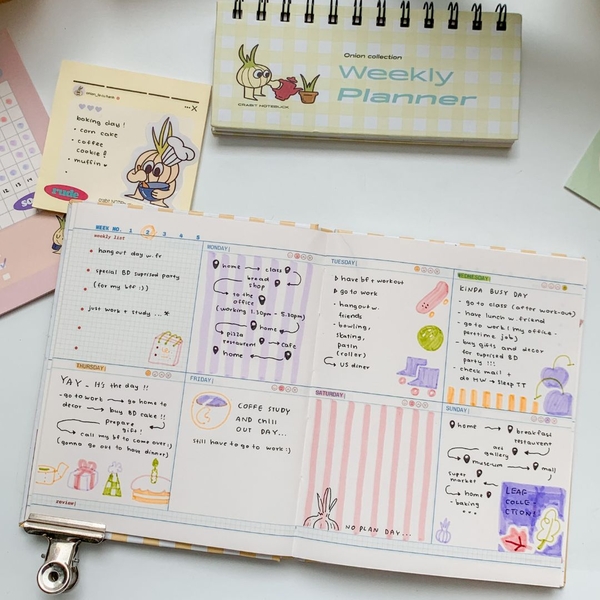 Onion collection
Weekly
Planner
CRABIT NOTEBUCK
baking day!
• corn cake
• coffee
cookie!
• muffin
rude
12 13 14
WEEK NO. 1 2 3 4 5
weekly list
• hang out day w. fr
• special BD suprised party
(for my btf :))
just work + study ... *
MONDAY|
home → class
bread
shop
to the
office
(working 1.30pm - 5.30pm)
home
pizza
restaurent → cafe
home
TUESDAY|
▷ have bf + workout
▷ go to work
• hangout w.
friends
- bowling,
skating,
patin
(roller)
↪ US diner
WEDNESDAY|
KINDA BUSY DAY
- go to class (after work-out)
- have lunch w. friend
- go to work (my office -
partime job)
- buy gifts and decor
for supised BD
party !!!
- check mail +
do HW → Sleep TT
THURSDAY|
YAY - It's the day !!
- go to work → go home to
decor → buy BD cake !!
prepare
gift!
call my bf to come over :)
(gonna go out to have dinner)
review|
FRIDAY|
COFFE STUDY
AND CHILL
OUT DAY...
still have to go to work :)
SATURDAY|
NO PLAN DAY...
SUNDAY|
home → breakfast
restaurent
art
gallery
museum → mall
super
market
home
- baking
...
LEAF
COLLE-
CTION!